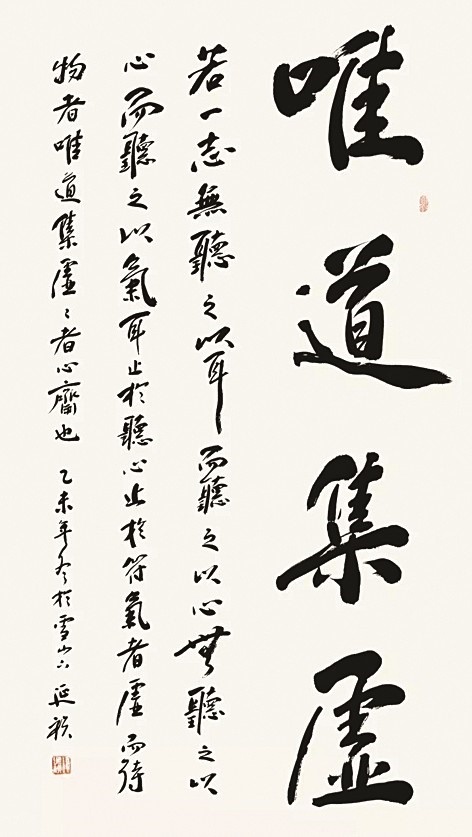 唯道集虛
若一志無聽之以耳而聽之以心無聽之以
心而聽之以氣耳止於聽心止於符氣者虛而待
物者唯道集虛〻者心齋也 乙未年冬於雪